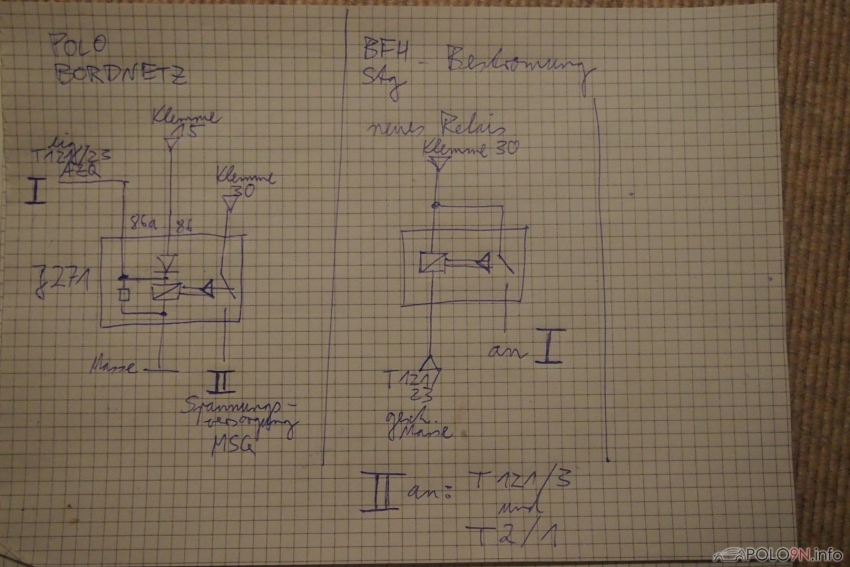 POLO
BORDNETZ
Klemme
15
T121/23
AZQ
I
Klemme
30
86a
86
J271
Masse
II
Spannungs-
versorgung
MSG
BFH
Stg - Bestromung
neues Relais
Klemme 30
an I
T121/
23
gesch.
Masse
II an: T121/3
und
T2/1
POLO9N.info